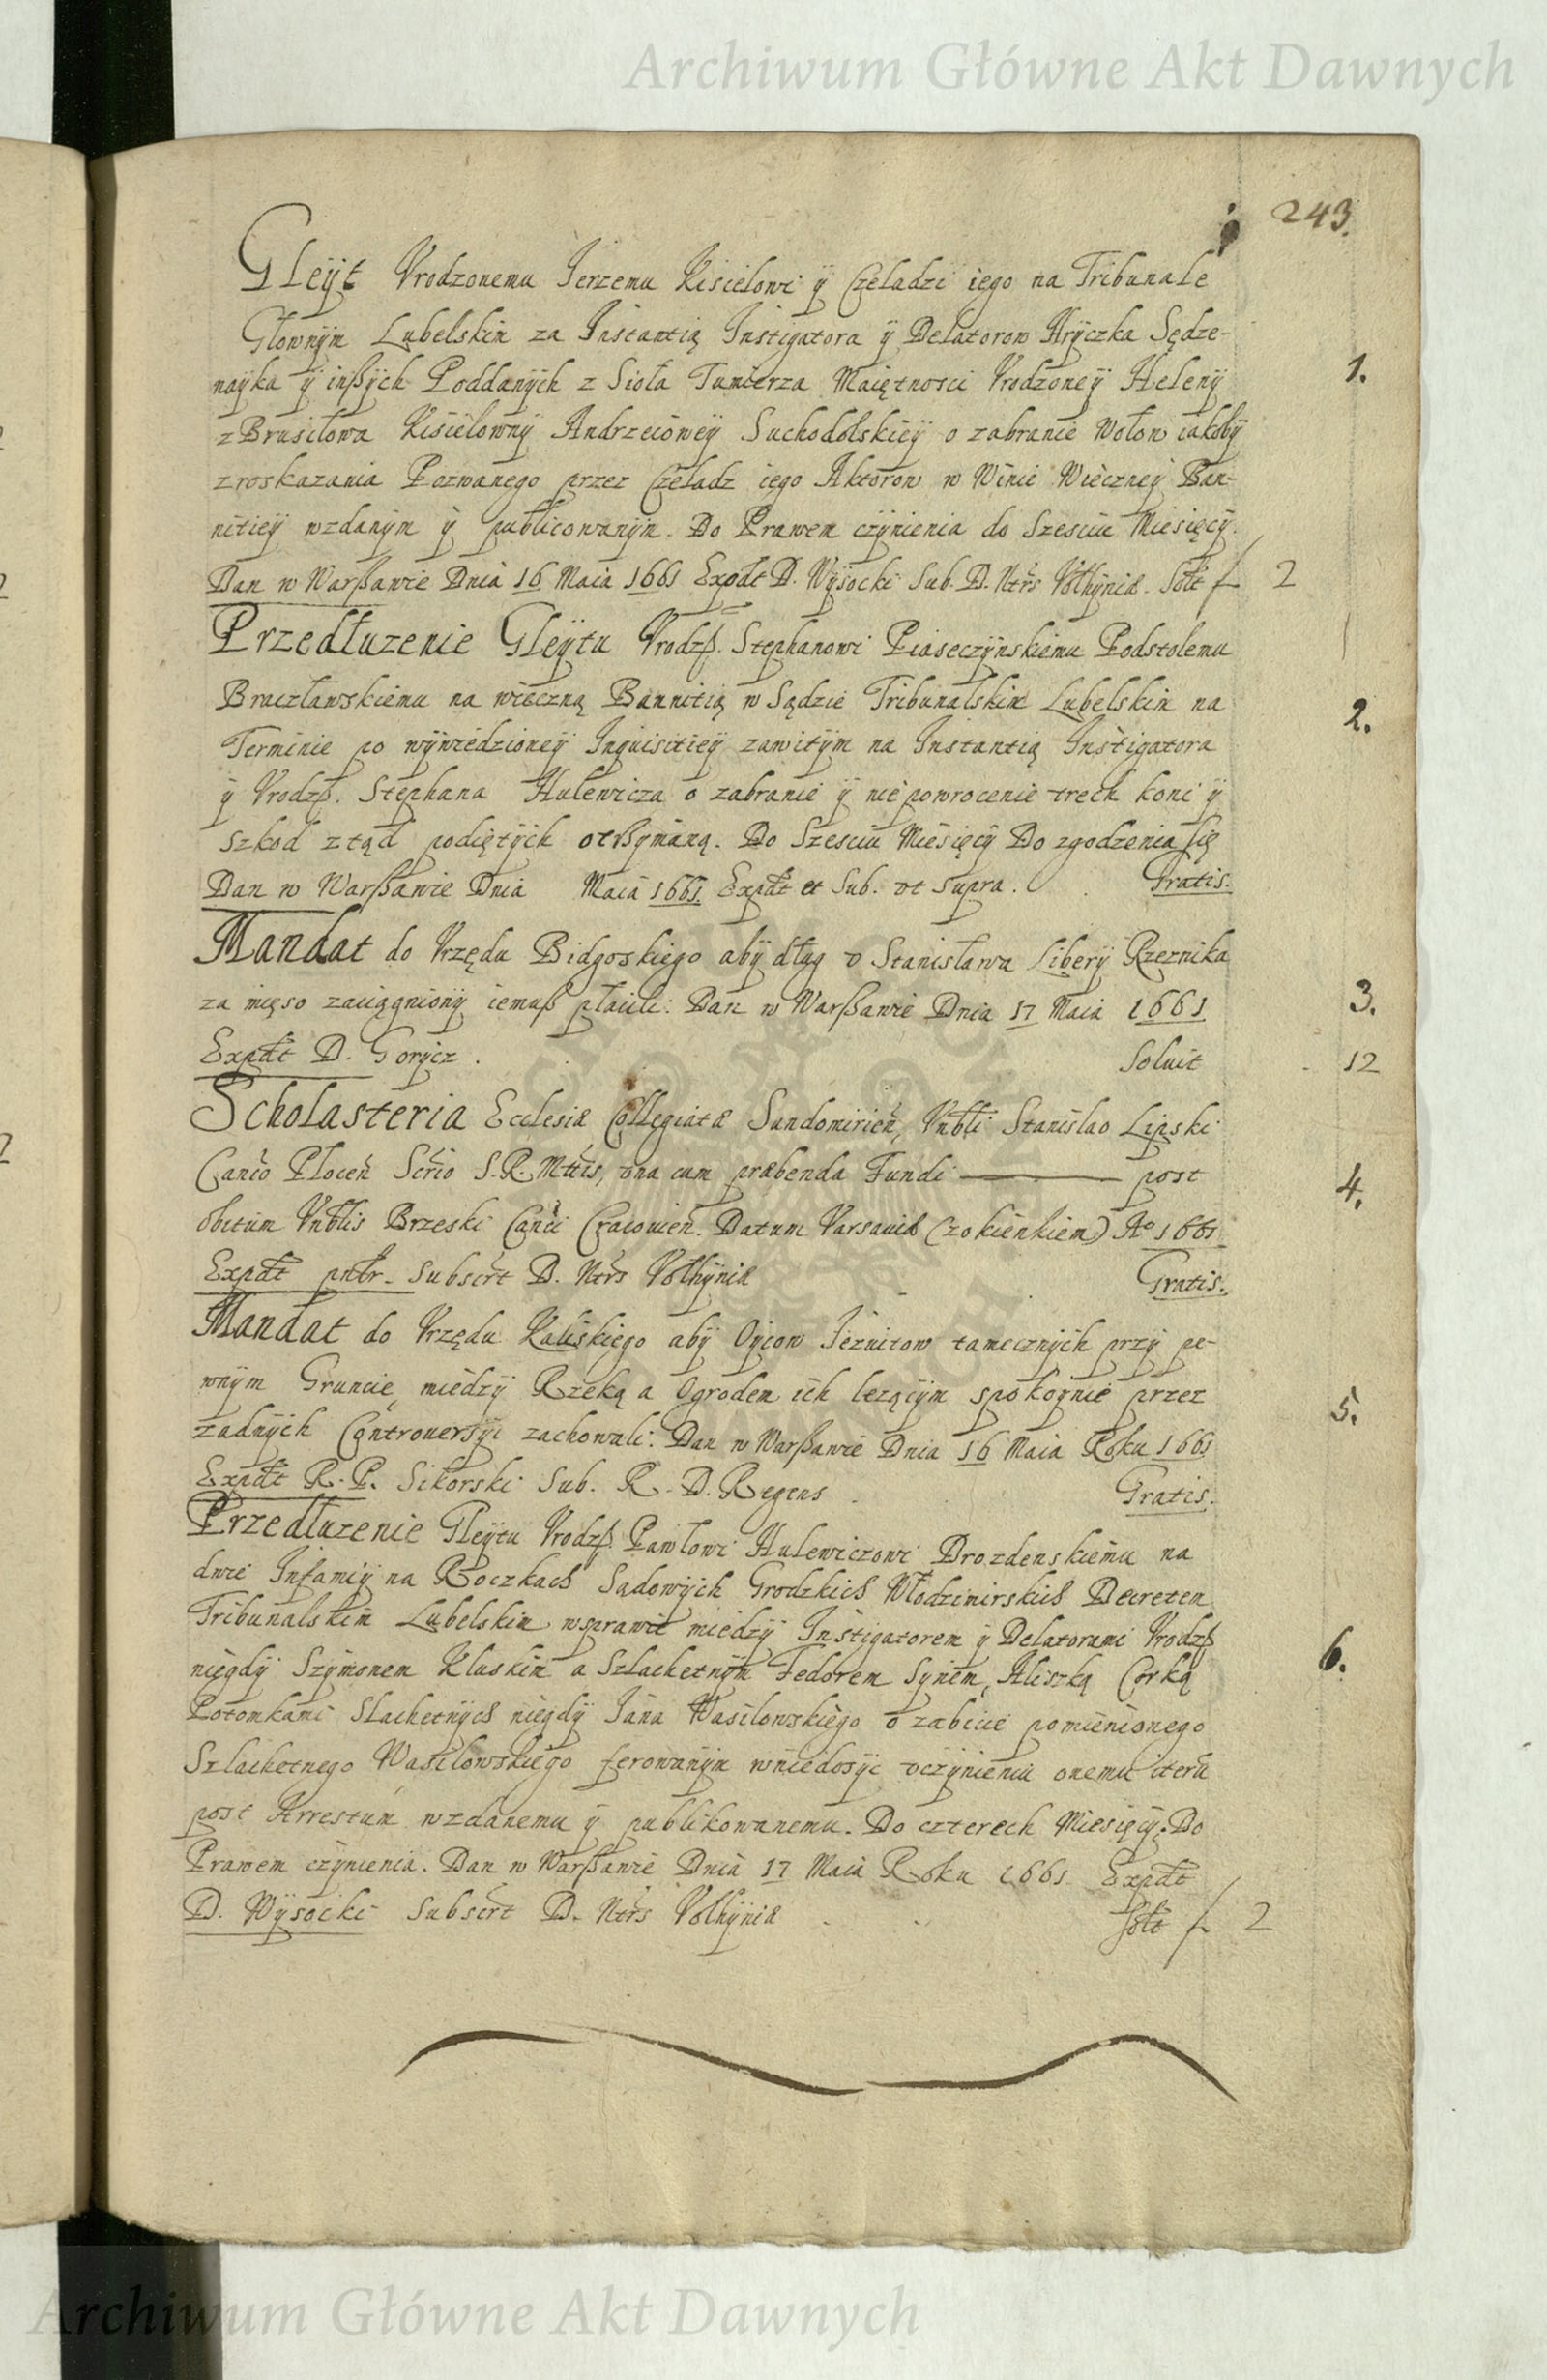 Archiwum Główne Akt Dawnych
243.
Gleÿt Vrodzonemu Jerzemu Kisielowi ÿ Czeladzi iego na Tribunale
Głownÿm Lubelskim za Instantią Instigatora ÿ Delatorow Hrÿczka Sędze-
naÿka ÿ inßÿch Poddanÿch z Sioła Tumierza Maiętnosci Vrodzoneÿ Helenÿ 1.
z Brusiłowa Kisielownÿ Andrzeioweÿ Suchodolskieÿ o zabranie Wołow iakobÿ
z roskazania Pozwanego przez Czeladz iego Aktorow w Winie Wieczneÿ Ban-
nitieÿ wzdanÿm ÿ publicowanÿm. Do Prawem czÿnienia do Szesciu Miesięcÿ.
Dan w Warßawie Dnia 16 Maia 1661 Expdt D. Wÿsocki Sub. D. Ntrs Volhÿniæ. Solt f 2
Przedłuzenie Gleÿtu Vrodzß. Stephanowi Piaseczÿnskiemu Podstolemu
Bracławskiemu na wieczną Bannitią w Sądzie Tribunalskim Lubelskim na 2.
Terminie po wÿwiedzioneÿ Inquisitieÿ zawitÿm na Instantią Instigatora
ÿ Vrodzß. Stephana Hulewicza o zabranie ÿ nie powrocenie trech koni ÿ
szkod ztąd podiętÿch otrßÿmaną. Do Szesciu Miesięcÿ Do zgodzenia się
Dan w Warßawie Dnia Maia 1661. Expdt et Sub. vt supra. Gratis.
Mandat do Vrzędu Bidgoskiego abÿ dług v Stanisława Liberÿ Rzeznika
za mięso zaciągnionÿ iemuß płacili. Dan w Warßawie Dnia 17 Maia 1661 3.
Expdt D. Gorÿcz. Soluit 12
Scholasteria Ecclesiæ Collegiatæ Sandomirien, Vnbli Stanislao Lipski
Canco Płocen Scrio S.R.Mttis, vna cum præbenda Fundi post 4.
obitum Vnblis Brzeski Canci Cracouien. Datum Varsauiæ (z okienkiem) Ao 1661
Expdt pntr. Subscrt D. Ntrs Volhÿniæ Gratis.
Mandat do Vrzędu Kaliskiego abÿ Oÿcow Jezuitow tamecznÿch przÿ pe-
wnÿm Gruncie, miedzÿ Rzeką a Ogrodem ich lezącÿm spokoÿnie przez 5.
zadnÿch Controuersÿi zachowali. Dan w Warßawie Dnia 16 Maia Roku 1661
Expdt R. P. Sikorski Sub. R. D. Regens Gratis.
Przedłuzenie Gleÿtu Vrodzß. Pawłowi Hulewiczowi Drozdenskiemu na
dwie Infamiÿ na Roczkach Sądowÿch Grodzkich Włodzimirskich Decretem
Tribunalskim Lubelskim wsprawie miedzÿ Instigatorem ÿ Delatorami Vrodzß
niegdÿ Szÿmonem Kluskim a Szlachetnÿm Fedorem Sÿnem, Aliszką Corką 6.
Potomkami Slachetnÿch niegdÿ Jana Wasilowskiego o zabicie pomienionego
Szlachetnego Wasilowskiego ferowanÿm wniedosÿc vczÿnieniu onemu iterũ
post Arrestum wzdanemu ÿ publikowanemu. Do czterech Miesięcÿ. Do
Prawem czÿnienia. Dan w Warßawie Dnia 17 Maia Roku 1661 Expdt
D. Wÿsocki Subscrt D. Ntrs Volhÿniæ Solt f 2
Archiwum Główne Akt Dawnych